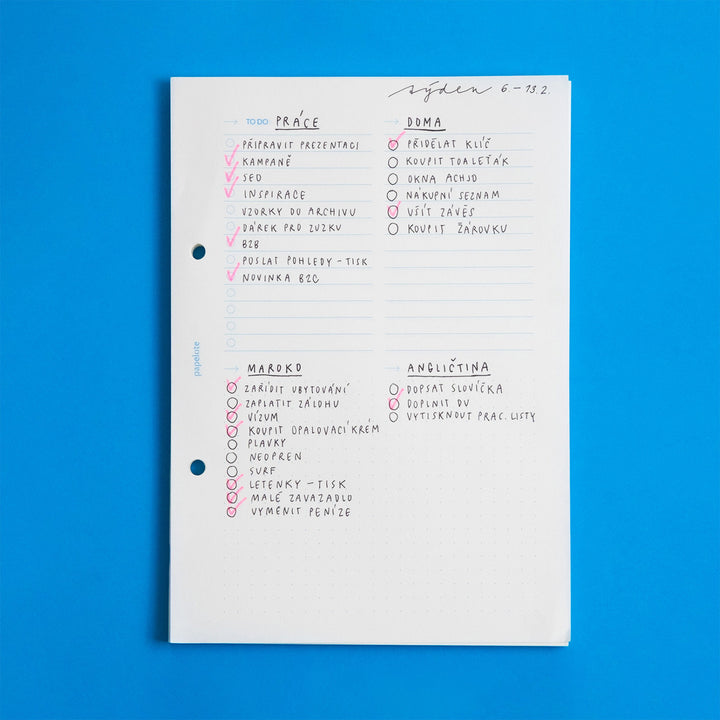 týden 6. – 13.2.
→ TO DO PRÁCE
PŘIPRAVIT PREZENTACI
KAMPANĚ
SEO
INSPIRACE
VZORKY DO ARCHIVU
DÁREK PRO ZUZKU
B2B
POSLAT POHLEDY – TISK
NOVINKA B2C
→ DOMA
PŘIDĚLAT KLÍČ
KOUPIT TOALEŤÁK
OKNA ACHJO
NÁKUPNÍ SEZNAM
UŠÍT ZÁVĚS
KOUPIT ŽÁROVKU
papelote
→ MAROKO
ZAŘÍDIT UBYTOVÁNÍ
ZAPLATIT ZÁLOHU
VÍZUM
KOUPIT OPALOVACÍ KRÉM
PLAVKY
NEOPREN
SURF
LETENKY – TISK
MALÉ ZAVAZADLO
VYMĚNIT PENÍZE
→ ANGLIČTINA
DOPSAT SLOVÍČKA
DOPLNIT DÚ
VYTISKNOUT PRAC. LISTY